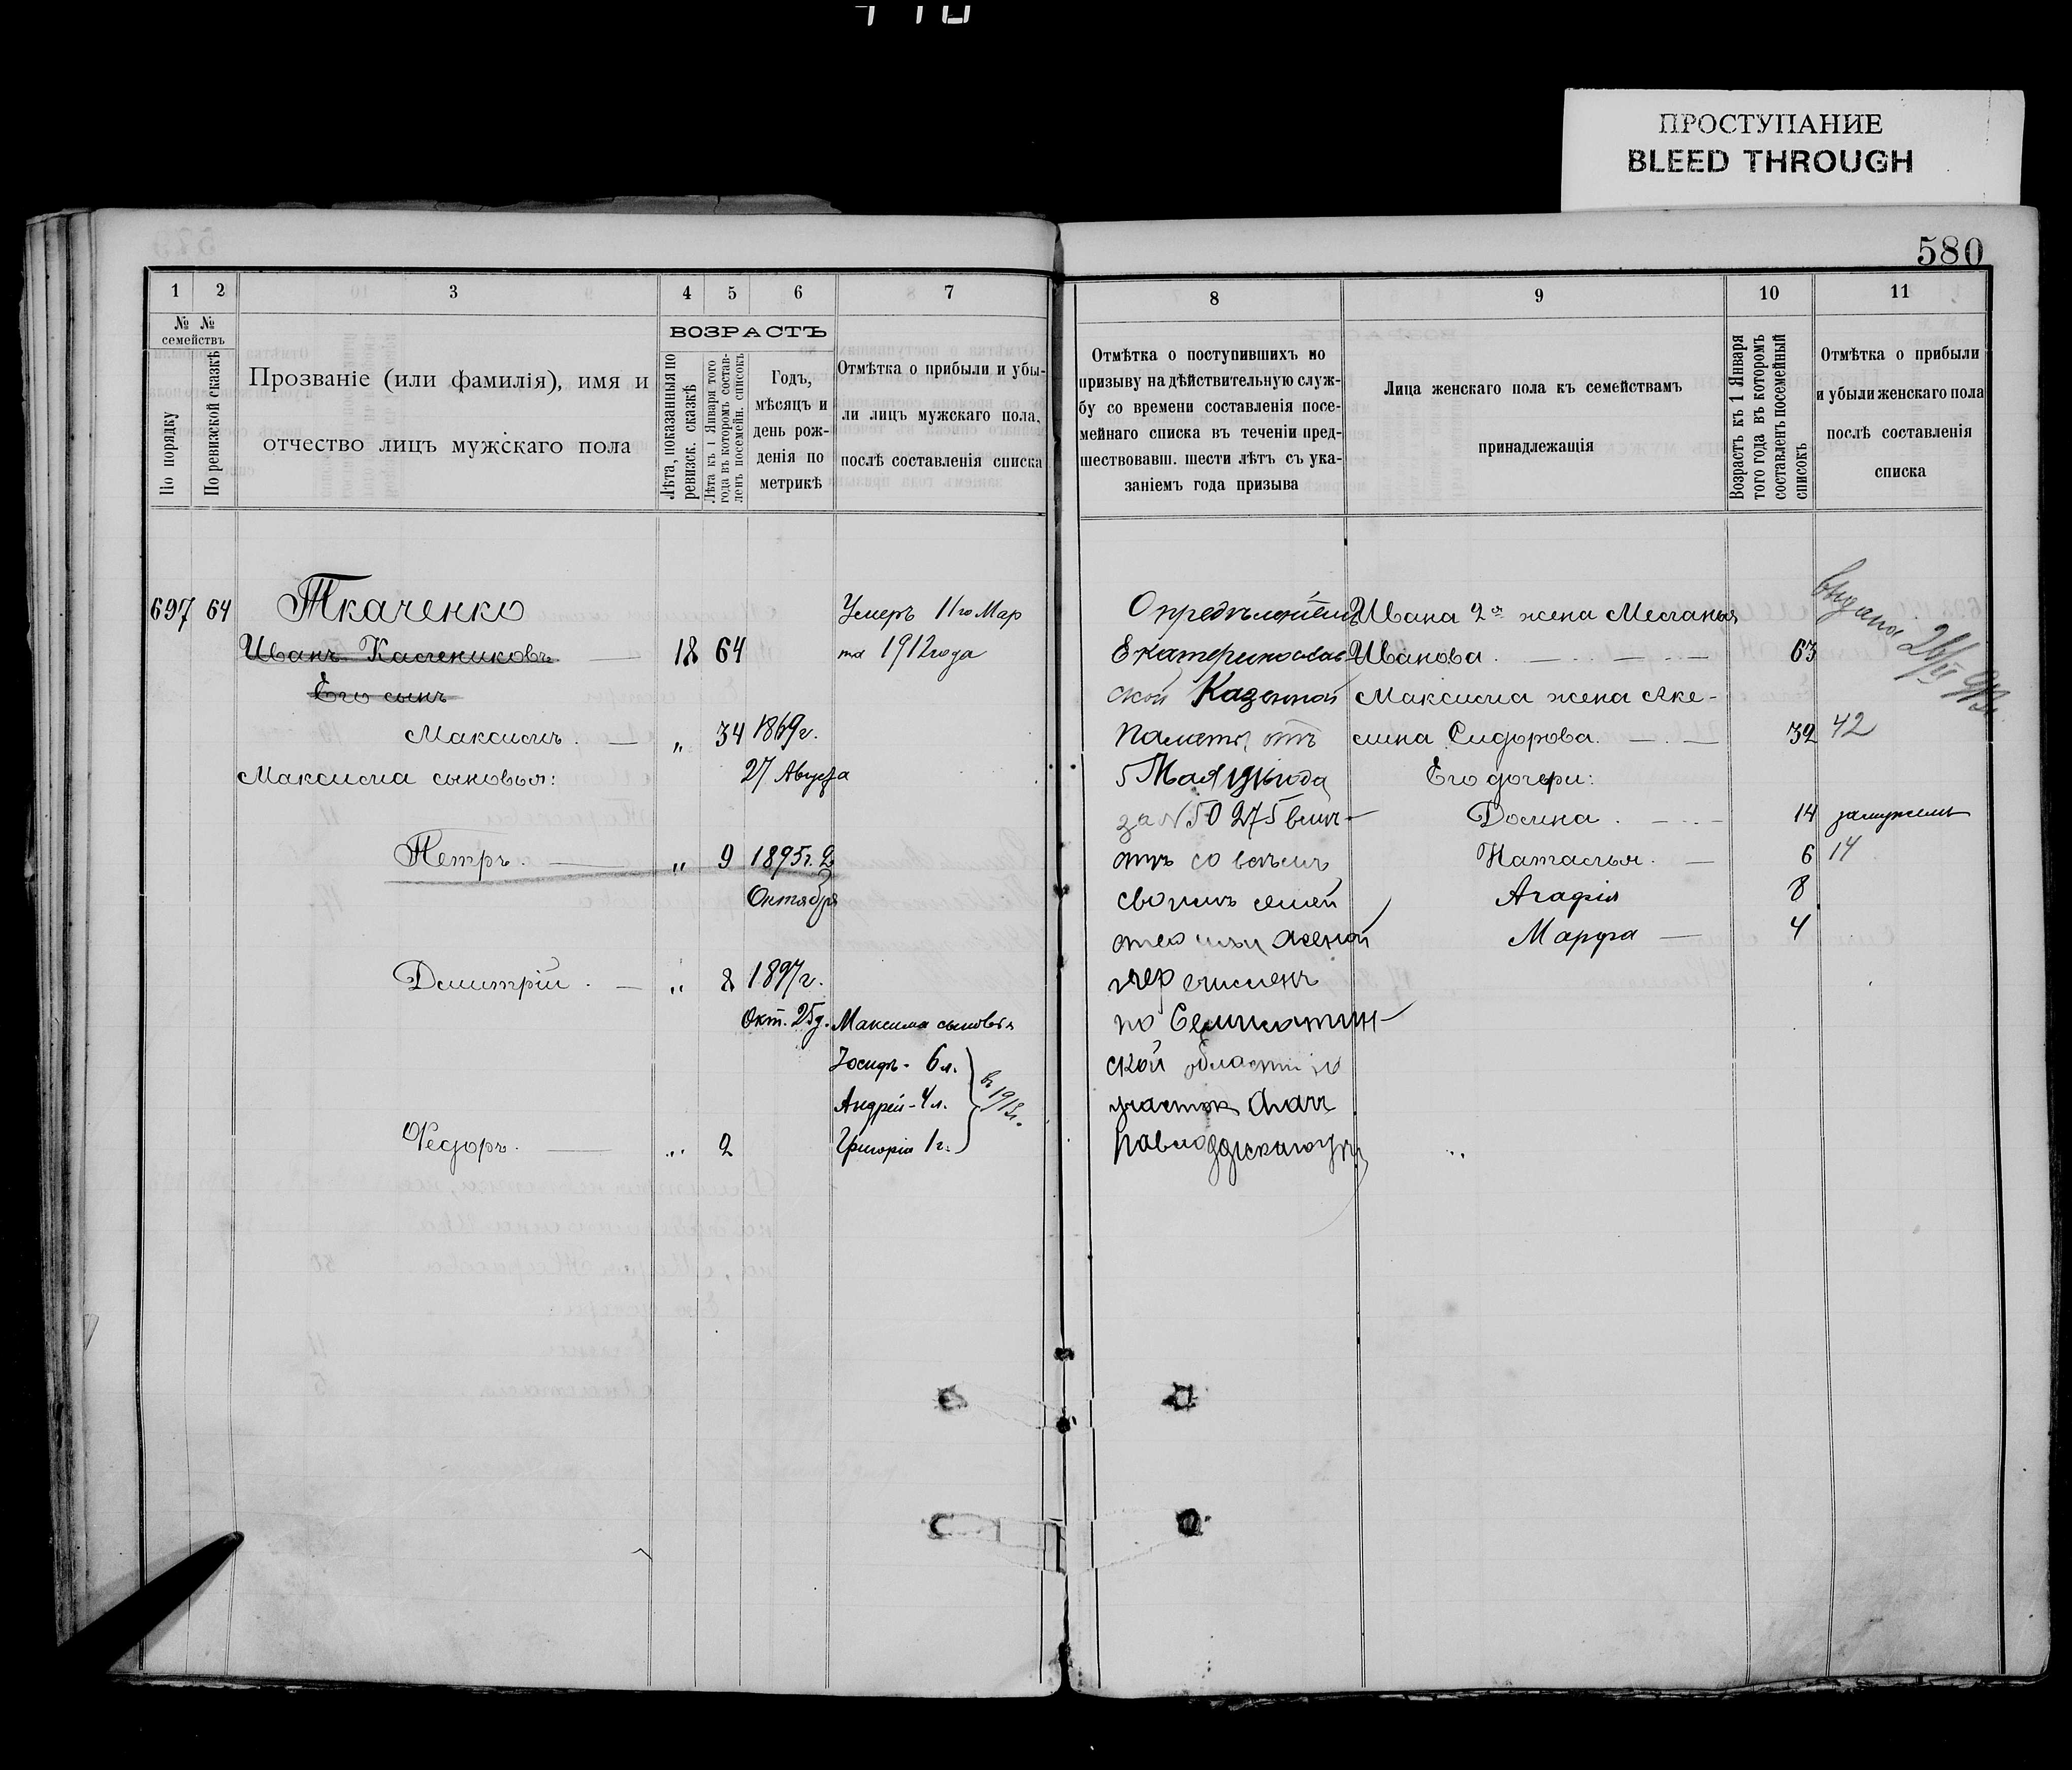 ПРОСТУПАНИЕ
BLEED THROUGH
580
1 2 3 4 5 6 7
№ №
семействъ
По порядку
По ревизской сказкѣ
Прозваніе (или фамилія), имя и
отчество лицъ мужскаго пола
ВОЗРАСТЪ
Лѣта, показанныя по
ревизск. сказкѣ
Лѣта къ 1 Января того
года въ которомъ состав-
ленъ посемейн. списокъ
Годъ,
мѣсяцъ и
день рож-
денія по
метрикѣ
Отмѣтка о прибыли и убы-
ли лицъ мужскаго пола,
послѣ составленія списка
697 64 Ткаченко Умеръ 11го Мар
Иванъ 18 64 та 1912 года
Его сынъ
Максимъ „ 34 1869 г.
Максима сыновья: 27 Августа
Петръ „ 9 1895 г. 2
Октября
Димитрій „ 8 1897 г.
Окт. 25 д. Максима сыновья
Іосифъ - 6 л.
Андрей - 4 л.
Григорій 1 г.
Федоръ „ 2
8 9 10 11
Отмѣтка о поступившихъ по
призыву на дѣйствительную служ-
бу со времени составленія посе-
мейнаго списка въ теченіи пред-
шествовавш. шести лѣтъ съ ука-
заніемъ года призыва
Лица женскаго пола къ семействамъ
принадлежащія
Возрастъ къ 1 Января
того года въ которомъ
составленъ посемейный
списокъ
Отмѣтка о прибыли
и убыли женскаго пола
послѣ составленія
списка
Ивана 2я жена Меланья
Екатеринослав- Иванова 63
ской Казенной Максима жена Аке-
Палаты отъ сина Сидорова 32 42
5 Мая Его дочери:
за № 50275 Домна 14 замужемъ
со всѣмъ Наталья 6 14
своимъ семей Агафія 8
женой Марфа 4
перечисленъ
по Семипалатин-
ской области
участок
выдана